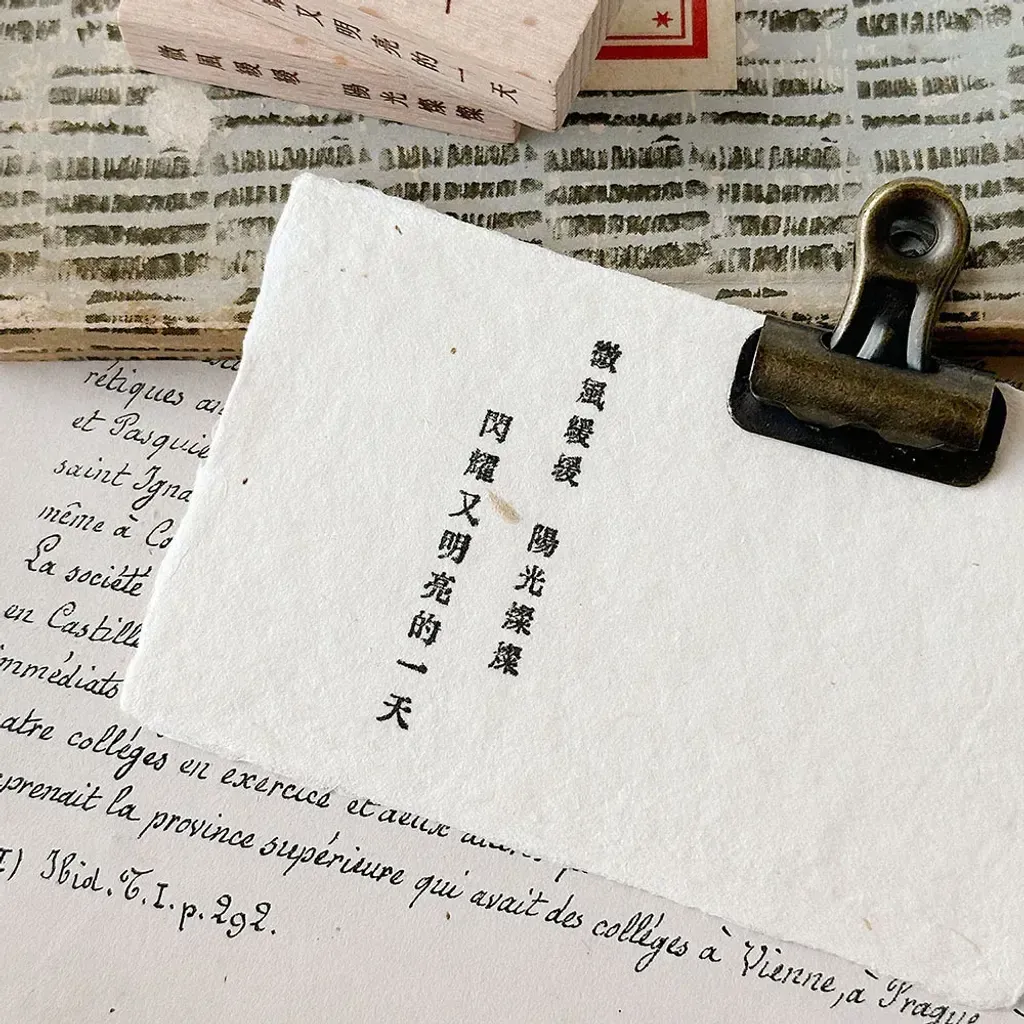 又明亮的一天
微風緩緩 陽光燦燦
微風緩緩 陽光燦燦
閃耀又明亮的一天
rétiques
et Pasquie
saint Igna
même à Co
La société
en Castill
immédiats
atre colléges en exercice et deux
prenait la province supérieure qui avait des colléges à Vienne, à Prague
I) Ibid. T. I. p. 292.